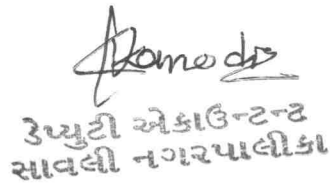 ડેપ્યુટી એકાઉન્ટન્ટ
સાવલી નગરપાલીકા